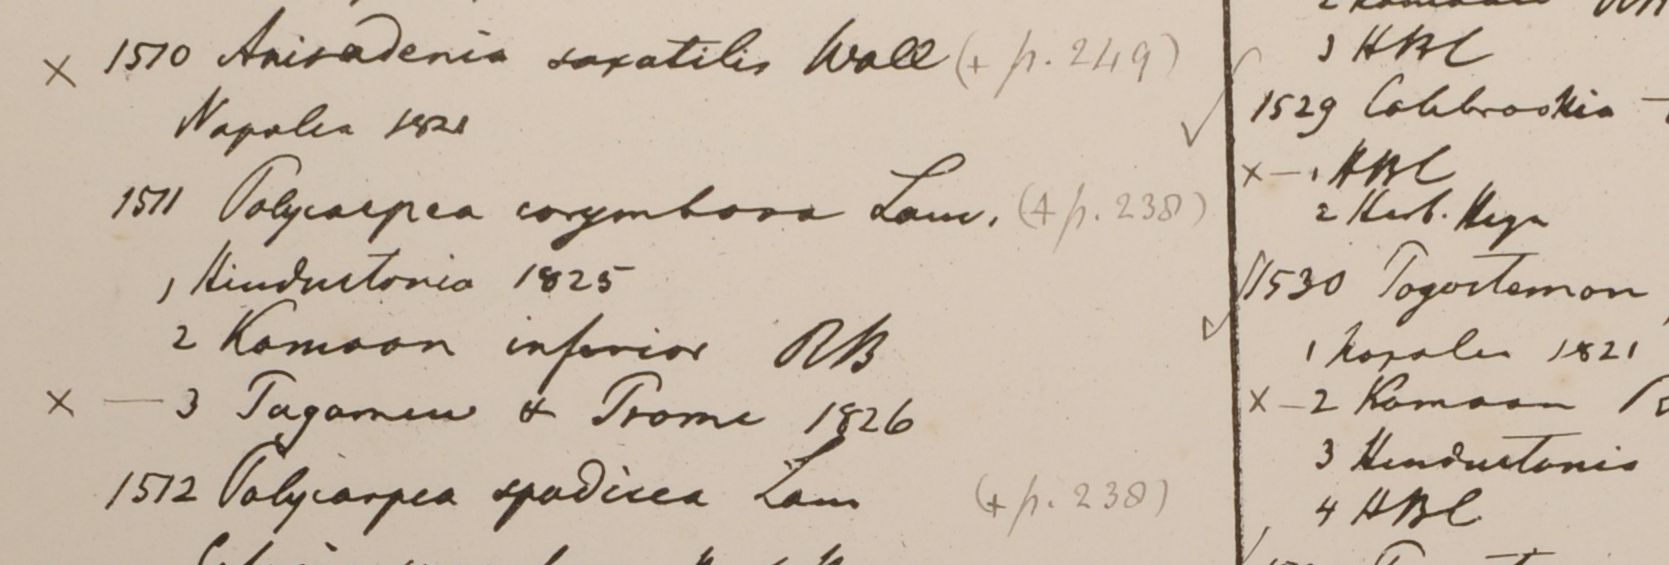 × 1510 Anisadenia saxatilis Wall (+ p. 249)
Napalia 1821
1511 Polycarpea corymbosa Lam. (+ p. 238)
1 Hindustania 1825
2 Kamaon inferior RB
× — 3 Tagamew & Prome 1826
1512 Polycarpea spadicea Lam (+ p. 238)
3 HBC
✓ 1529 Colebrookia —
× — 1 HBC
2 Herb. Heyn
✓ 1530 Pogostemon
1 Napalia 1821
× — 2 Kamaon
3 Hindustania
4 HBC